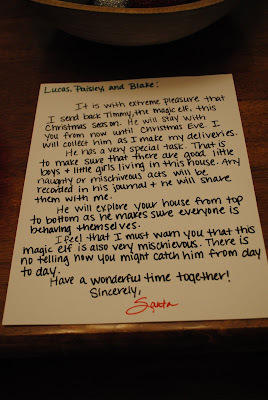 Lucas, Paisley, and Blake:
It is with extreme pleasure that
I send back Timmy, the magic elf, this
Christmas season. He will stay with
you from now until Christmas Eve. I
will collect him as I make my deliveries.
He has a very special task. That is
to make sure that there are good little
boys + little girls living in this house. Any
naughty or mischievous acts will be
recorded in his journal + he will share
them with me.
He will explore your house from top
to bottom as he makes sure everyone is
behaving themselves.
I feel that I must warn you that this
magic elf is also very mischievous. There is
no telling how you might catch him from day
to day.
Have a wonderful time together!
Sincerely,
Santa